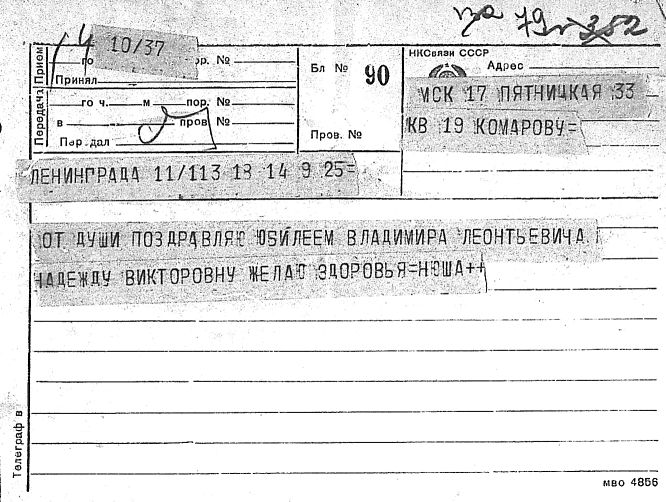 за 79 г 382
14 10/37
го ор. №
Принял
го ч. м пор. №
в пров №
Пер. дал
Передача Прием
Бл № 90
Пров. №
НКСвязи СССР
Адрес
МСК 17 ПЯТНИЦКАЯ 33
КВ 19 КОМАРОВУ=
ЛЕНИНГРАДА 11/113 18 14 9.25=
ОТ ДУШИ ПОЗДРАВЛЯЮ ЮБИЛЕЕМ ВЛАДИМИРА ЛЕОНТЬЕВИЧА
НАДЕЖДУ ВИКТОРОВНУ ЖЕЛАЮ ЗДОРОВЬЯ=НЮША++
Телеграф в
мво 4856